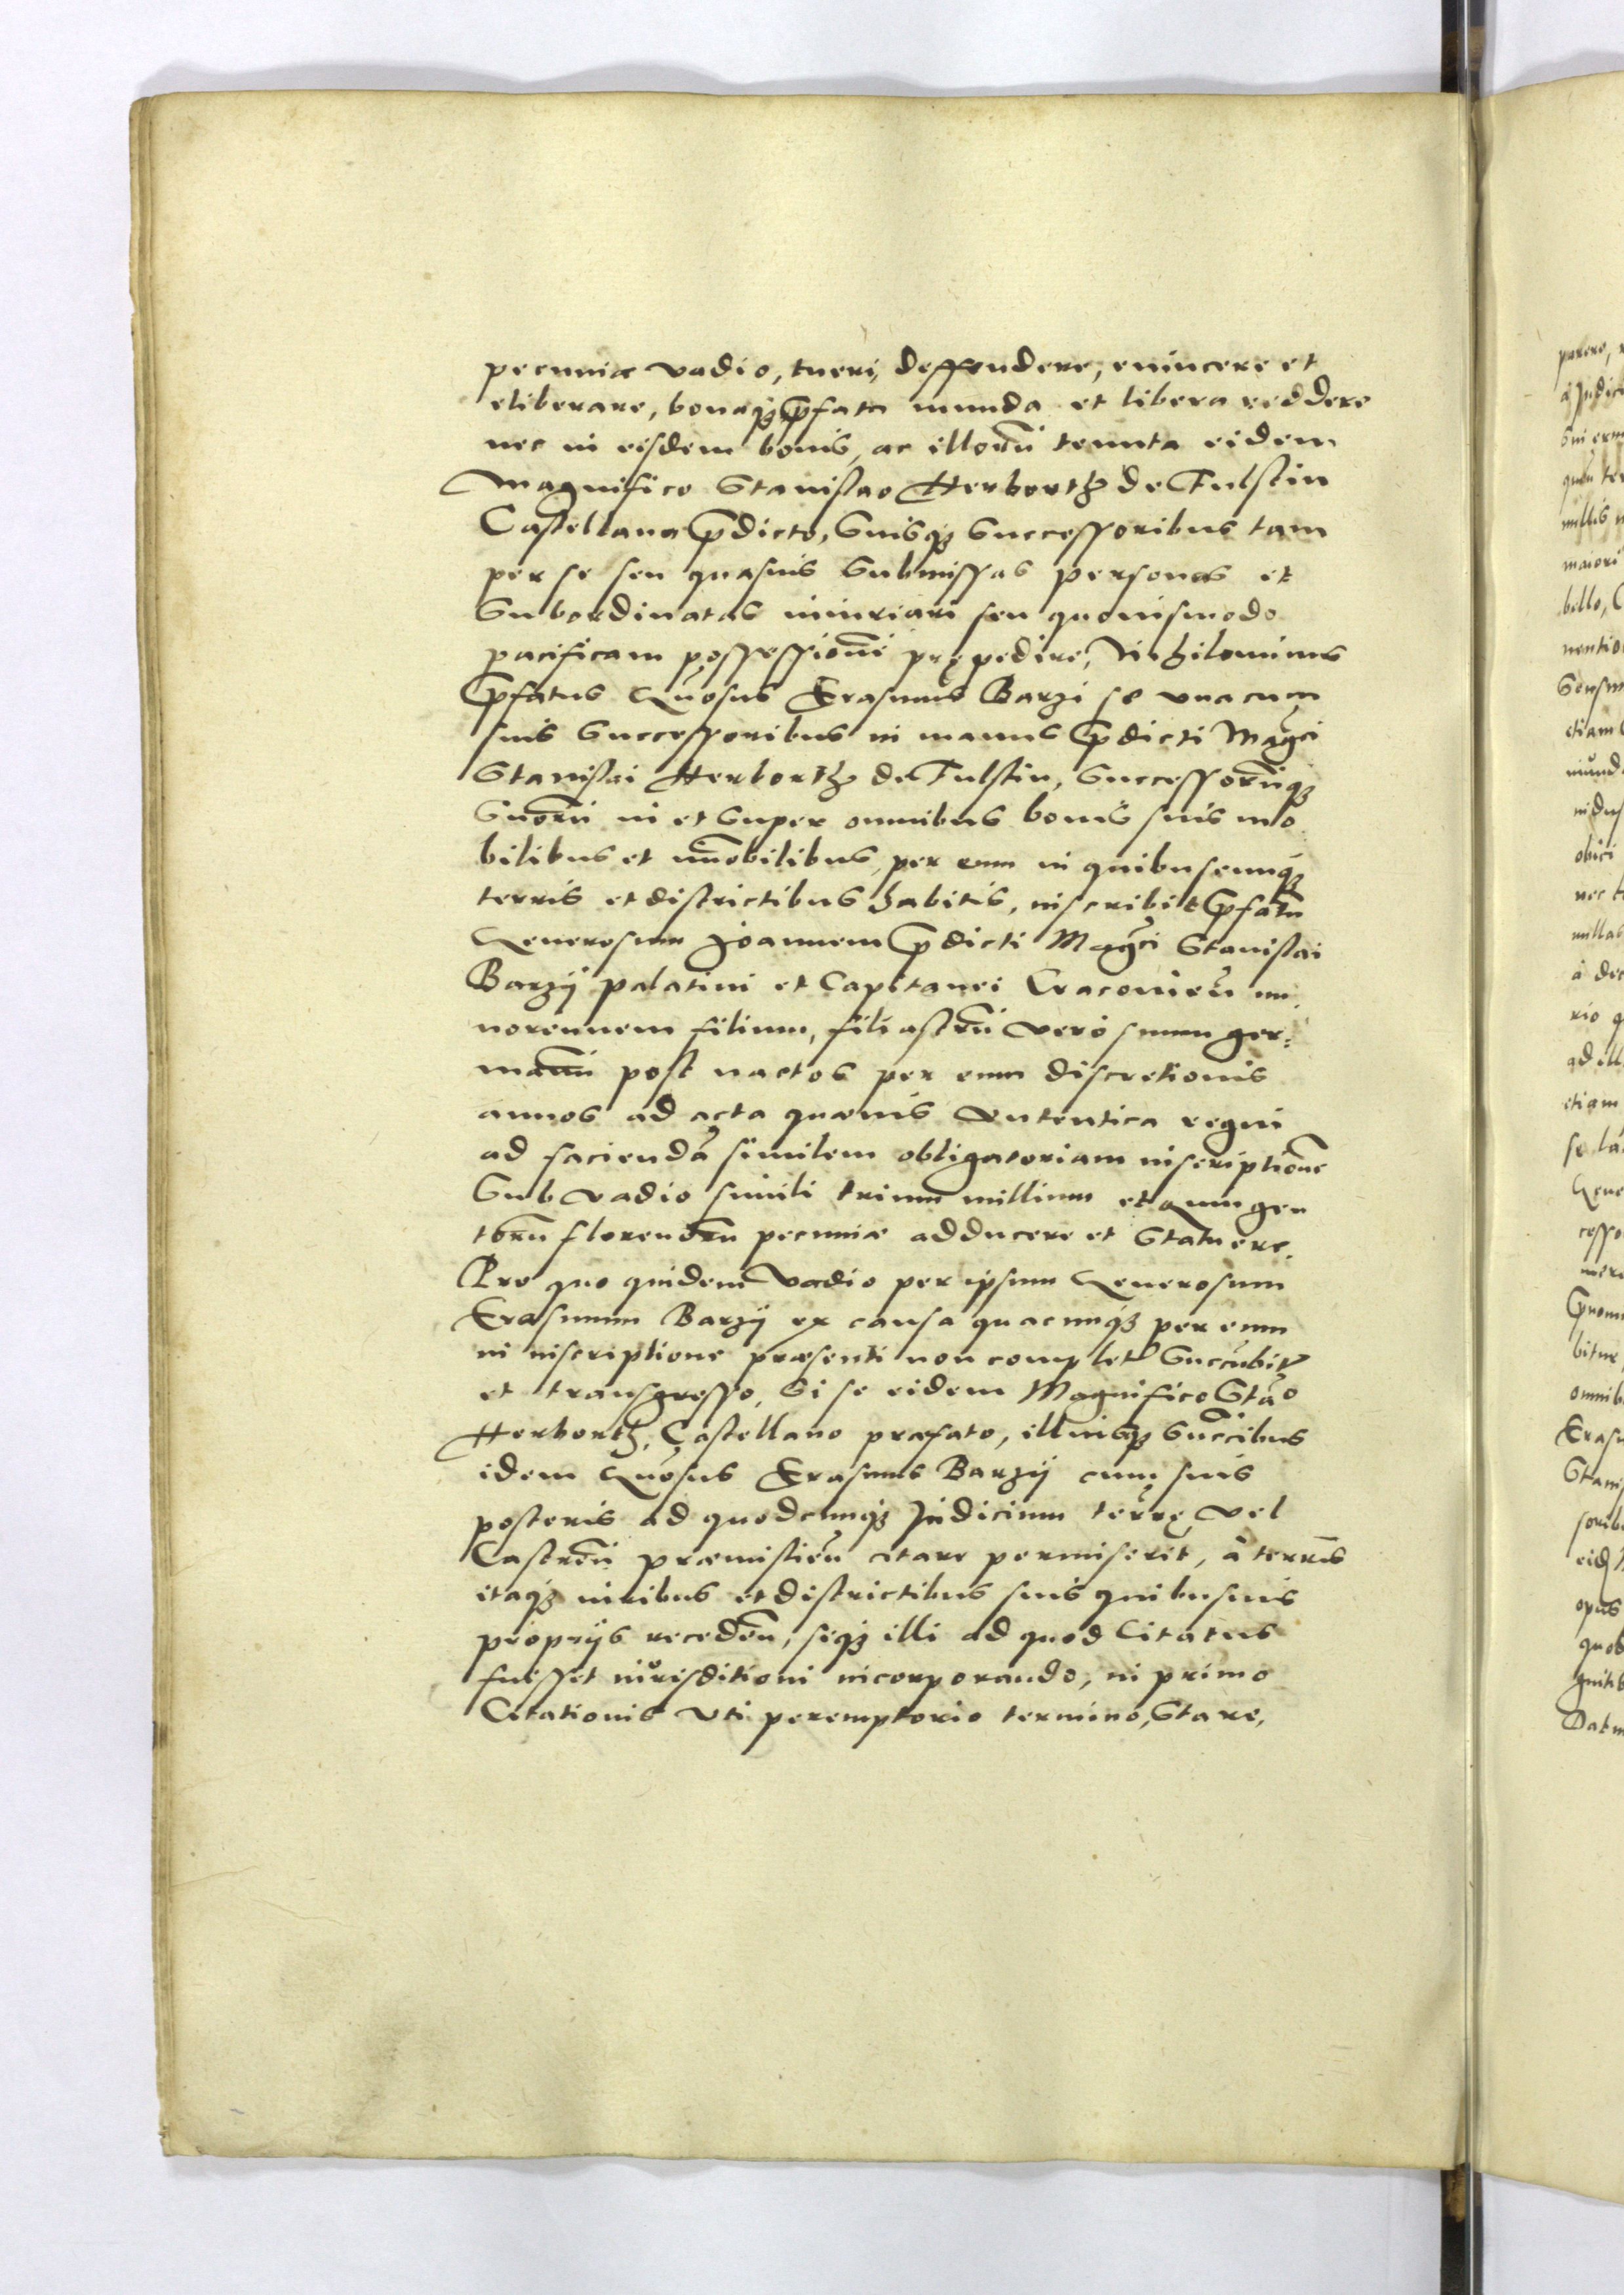 pecuniæ vadio, tueri, deffendere, euincere et
eliberare, bonaqꝫ p̄fata munda et libera reddere
nec in eisdem bonis, ac illorū tenuta eidem
Magnifico Stanislao Herborth de Fulstin
Castellano p̄dicto, Suisqꝫ Successoribus tam
per se seu quasuis Submissas personas et
Subordinatas iniuriari seu quouismodo
pacificam possessionē prępedire, Nihilominus
p̄fatus Gn̄osus Erasmus Barzi se vna cum
suis Successoribus in manus p̄dicti Mag̃ci
Stanislai Herborth de Fulstin, Successorūqꝫ
Suorū in et Super omnibus bonis suis mo
bilibus et im̄obilibus, per eum in quibuscunqꝫ
terris et districtibus habitis, inscribit p̄fatū
Generosum Joannem p̄dicti Mag̃ci Stanislai
Barzij palatini et Capitanei Cracouien̄ mi
norennem filium, filiastrū vero suum ger:
manū post nactos per eum discretionis
annos ad acta quæuis autentica regni
ad faciendā similem obligatoriam inscriptionē
Sub vadio simili trium millium et Quingen
torū florenorū pecuniæ adducere et Statuere.
Pro quo quidem vadio per ipsum Generosum
Erasmum Barzij ex causa quacunqꝫ per eum
in inscriptione præsenti non complet̃ Succubit̃
et transgresso, Si se eidem Magnifico Stão
Herborth, Castellano præfato, illiusqꝫ Succ̄ibus
idem Gn̄osus Erasmus Barzij cum suis
posteris ad quodcunqꝫ Judicium terrę vel
Castrēn præmislien̄ citare permiserit, à terris
itaqꝫ iuribus et districtibus suis quibusuis
proprijs recedēn, seqꝫ illi ad quod Citatus
fuisset iurisditioni incorporando, in primo
Citationis vti peremptorio termino, Stare,